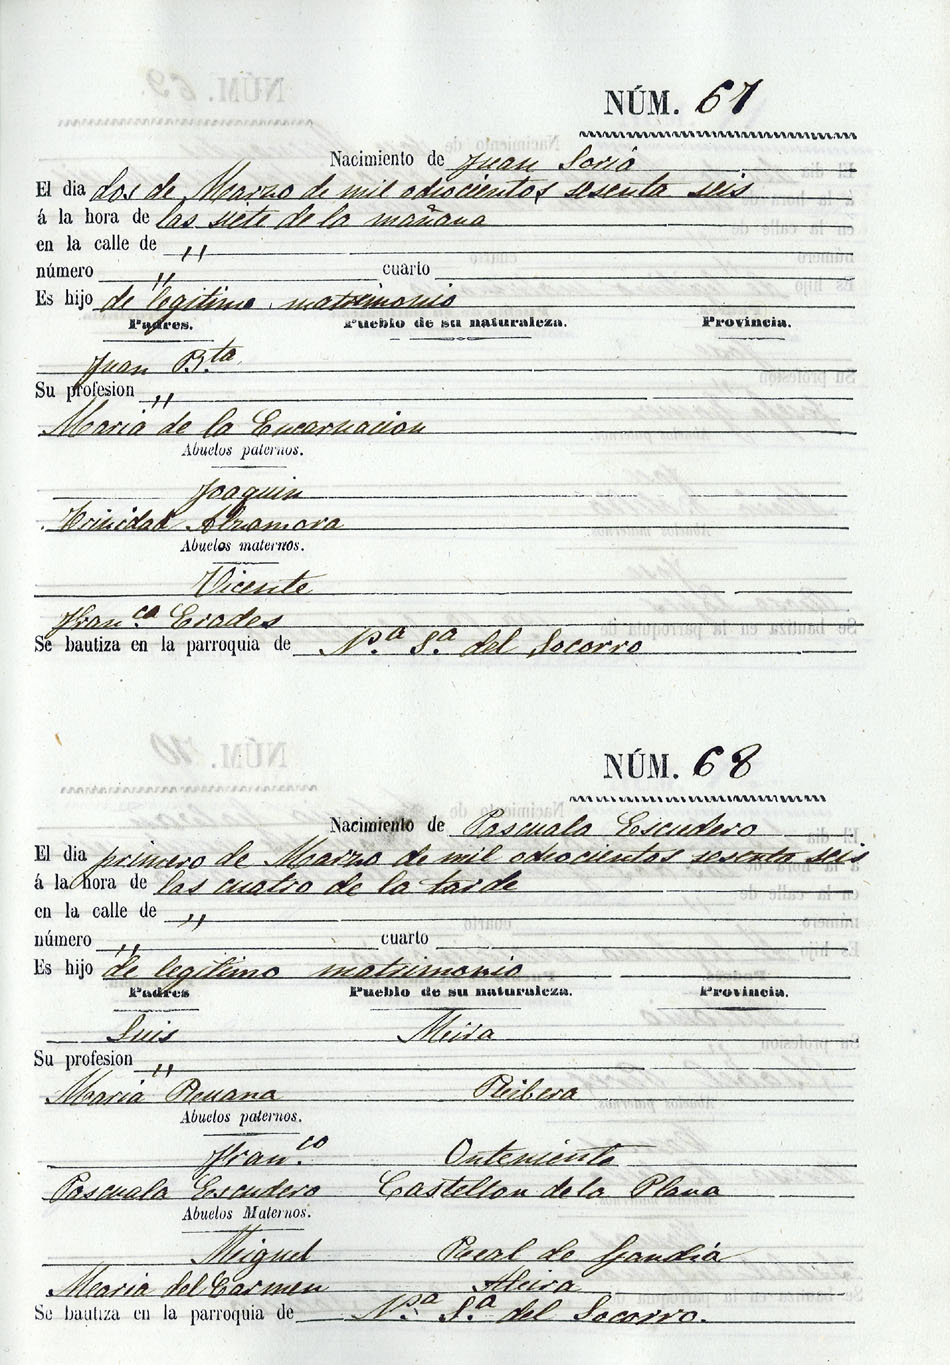 NÚM. 67
Nacimiento de Juan Soria
El dia dos de Marzo de mil ochocientos sesenta seis
á la hora de las siete de la mañana
en la calle de "
número " cuarto
Es hijo de legitimo matrimonio
Padres. Pueblo de su naturaleza. Provincia.
Juan B.ta
Su profesion "
Maria de la Encarnacion
Abuelos paternos.
Joaquin
Trinidad Alzamora
Abuelos maternos.
Vicente
Fran.ca Erades
Se bautiza en la parroquia de N.a S.a del Socorro
NÚM. 68
Nacimiento de Pascuala Escudero
El dia primero de Marzo de mil ochocientos sesenta seis
á la hora de las cuatro de la tarde
en la calle de "
número " cuarto
Es hijo de legitimo matrimonio
Padres Pueblo de su naturaleza. Provincia.
Luis
Su profesion "
Maria
Abuelos paternos.
Fran.co Onteniente
Pascuala Escudero Castellon de la Plana
Abuelos Maternos.
Miguel Real de Gandia
Maria del Carmen
Se bautiza en la parroquia de N.a S.a del Socorro.